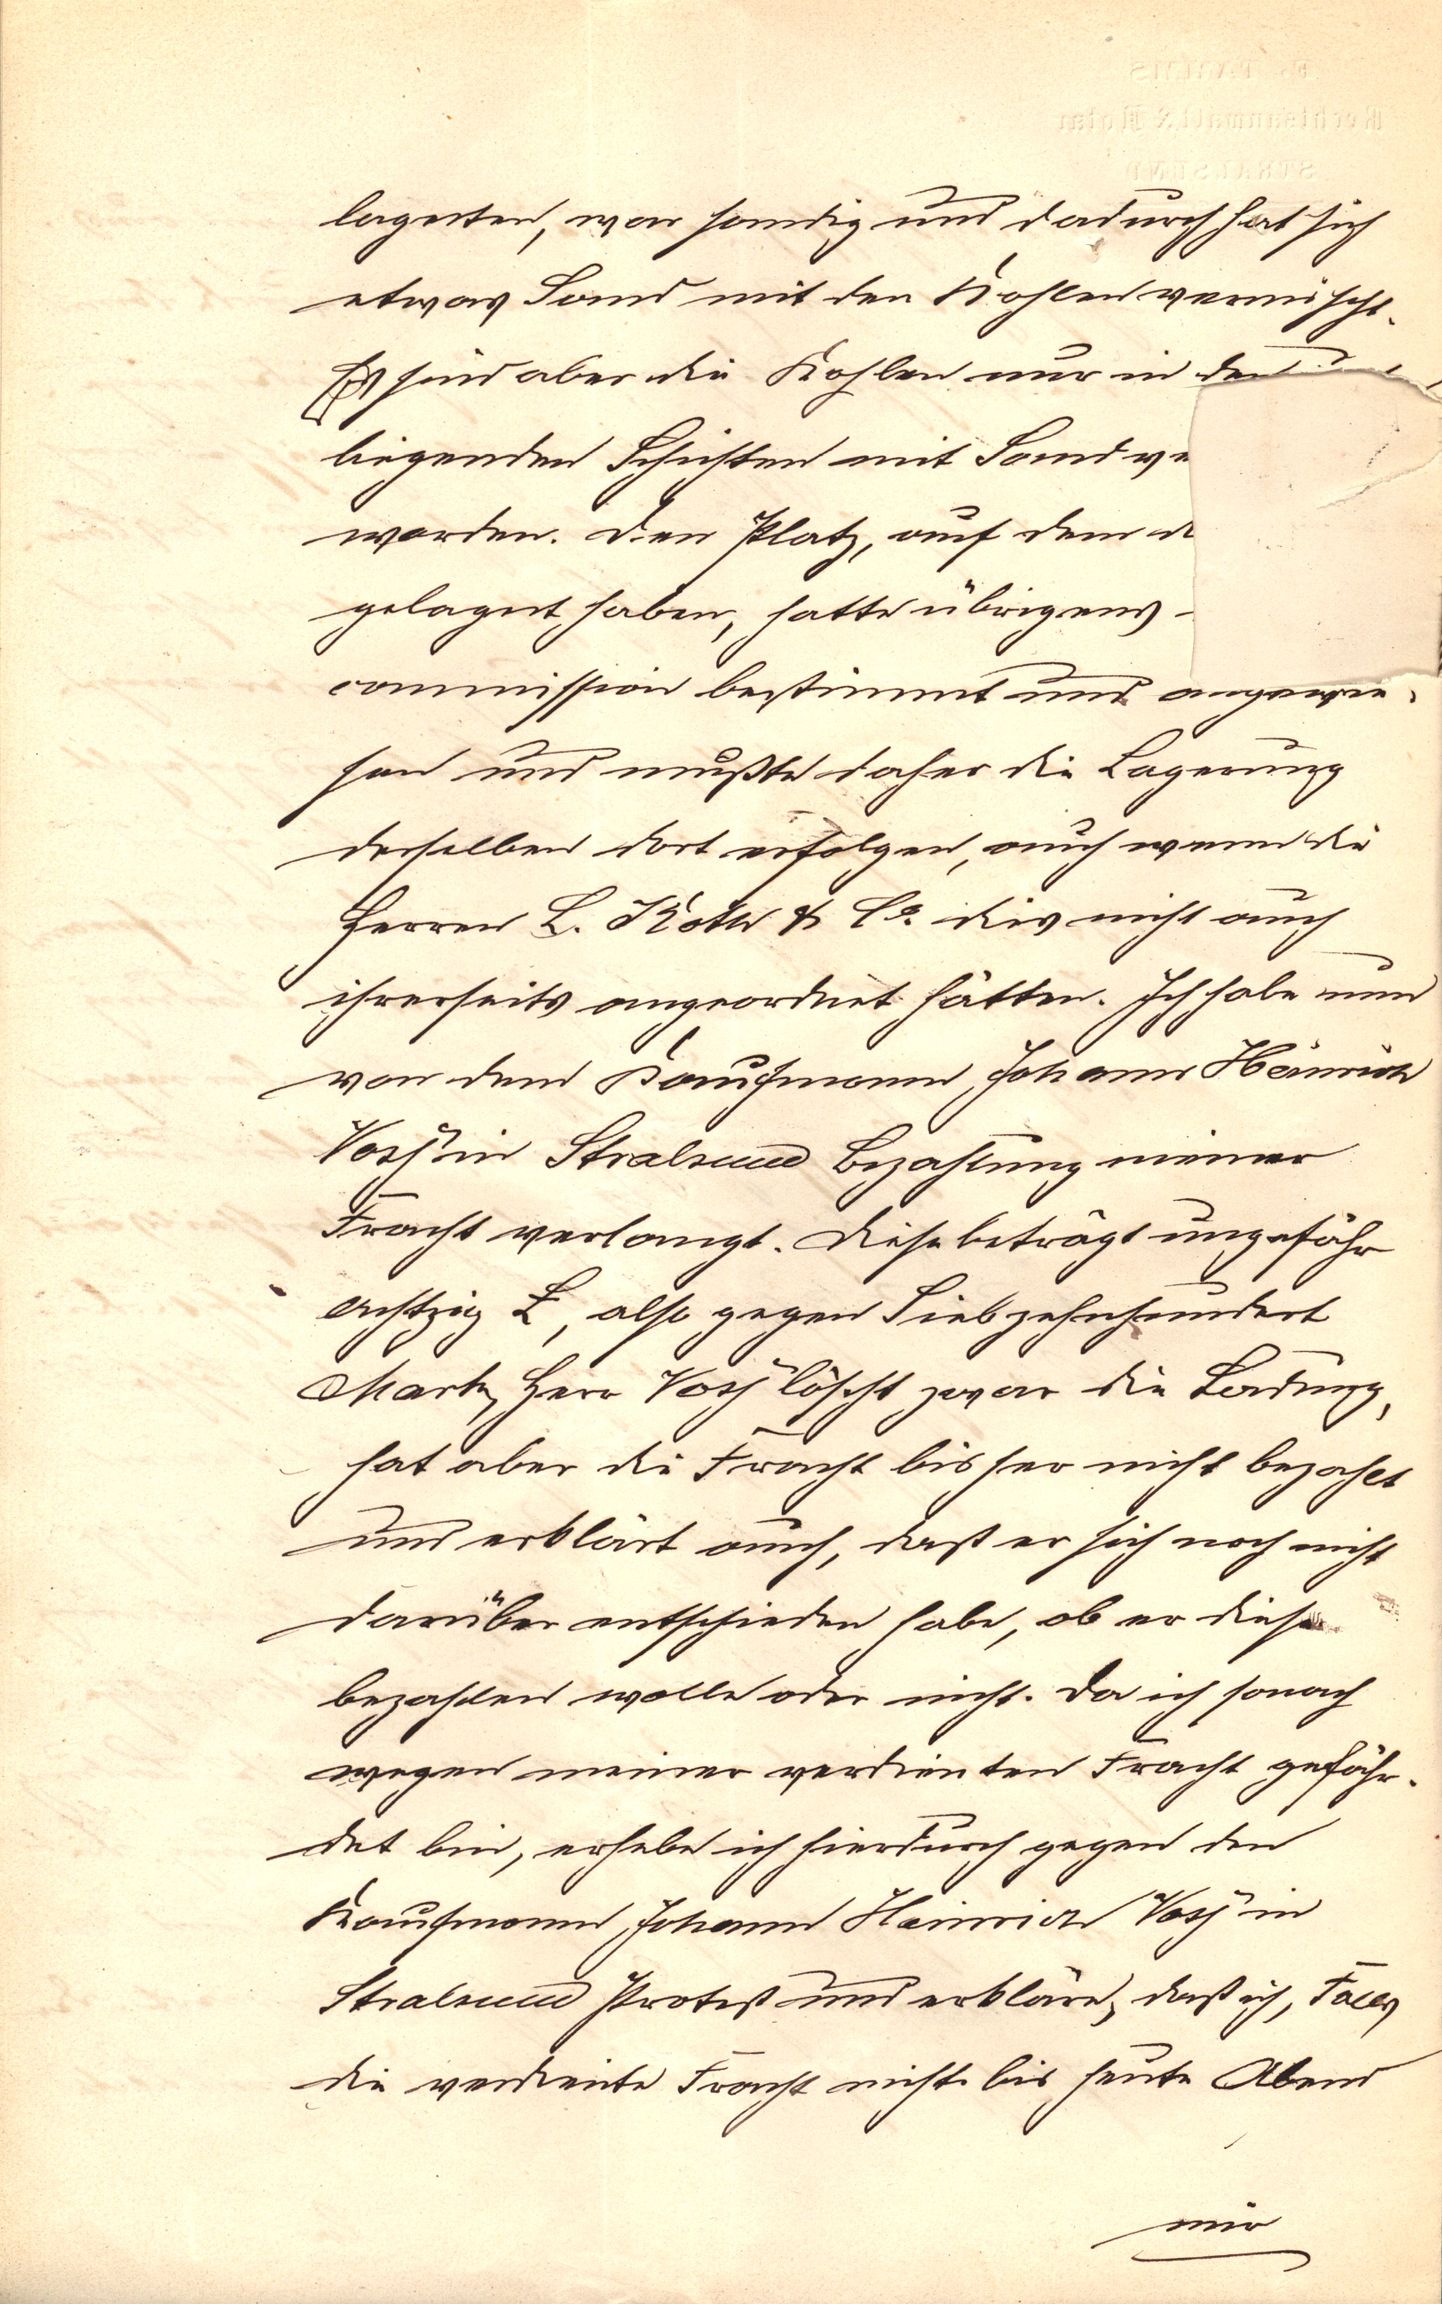 lagerten, war sandig und dadurch hat sich
etwas Sand mit den Kohlen vermischt.
Es sind aber die Kohlen nur in den
liegenden Schichten mit Sand ve
worden. Den Platz, auf dem d
gelagert haben, hatte übrigens
commission bestimmt und angewie-
sen und mußte daher die Lagerung
derselben dort erfolgen, auch wenn die
Herren L. Koth & Co. dies nicht auch
ihrerseits angeordnet hätten. Ich habe nun
von dem Kaufmann Johann Heinrich
Voss in Stralsund Bezahlung meiner
Fracht verlangt. Diese beträgt ungefähr
achtzig £, also gegen Siebzehnhundert
Mark, Herr Voss löscht zwar die Ladung,
hat aber die Fracht bisher nicht bezahlt
und erklärt auch, daß er sich noch nicht
darüber entschieden habe, ob er diese
bezahlen wolle oder nicht. Da ich sonach
wegen meiner verdienten Fracht gefähr-
det bin, erhebe ich hierdurch gegen den
Kaufmann Johann Heinrich Voss in
Stralsund Protest und erkläre, daß ich, Falls
die verdiente Fracht nicht bis heute Abend
mir